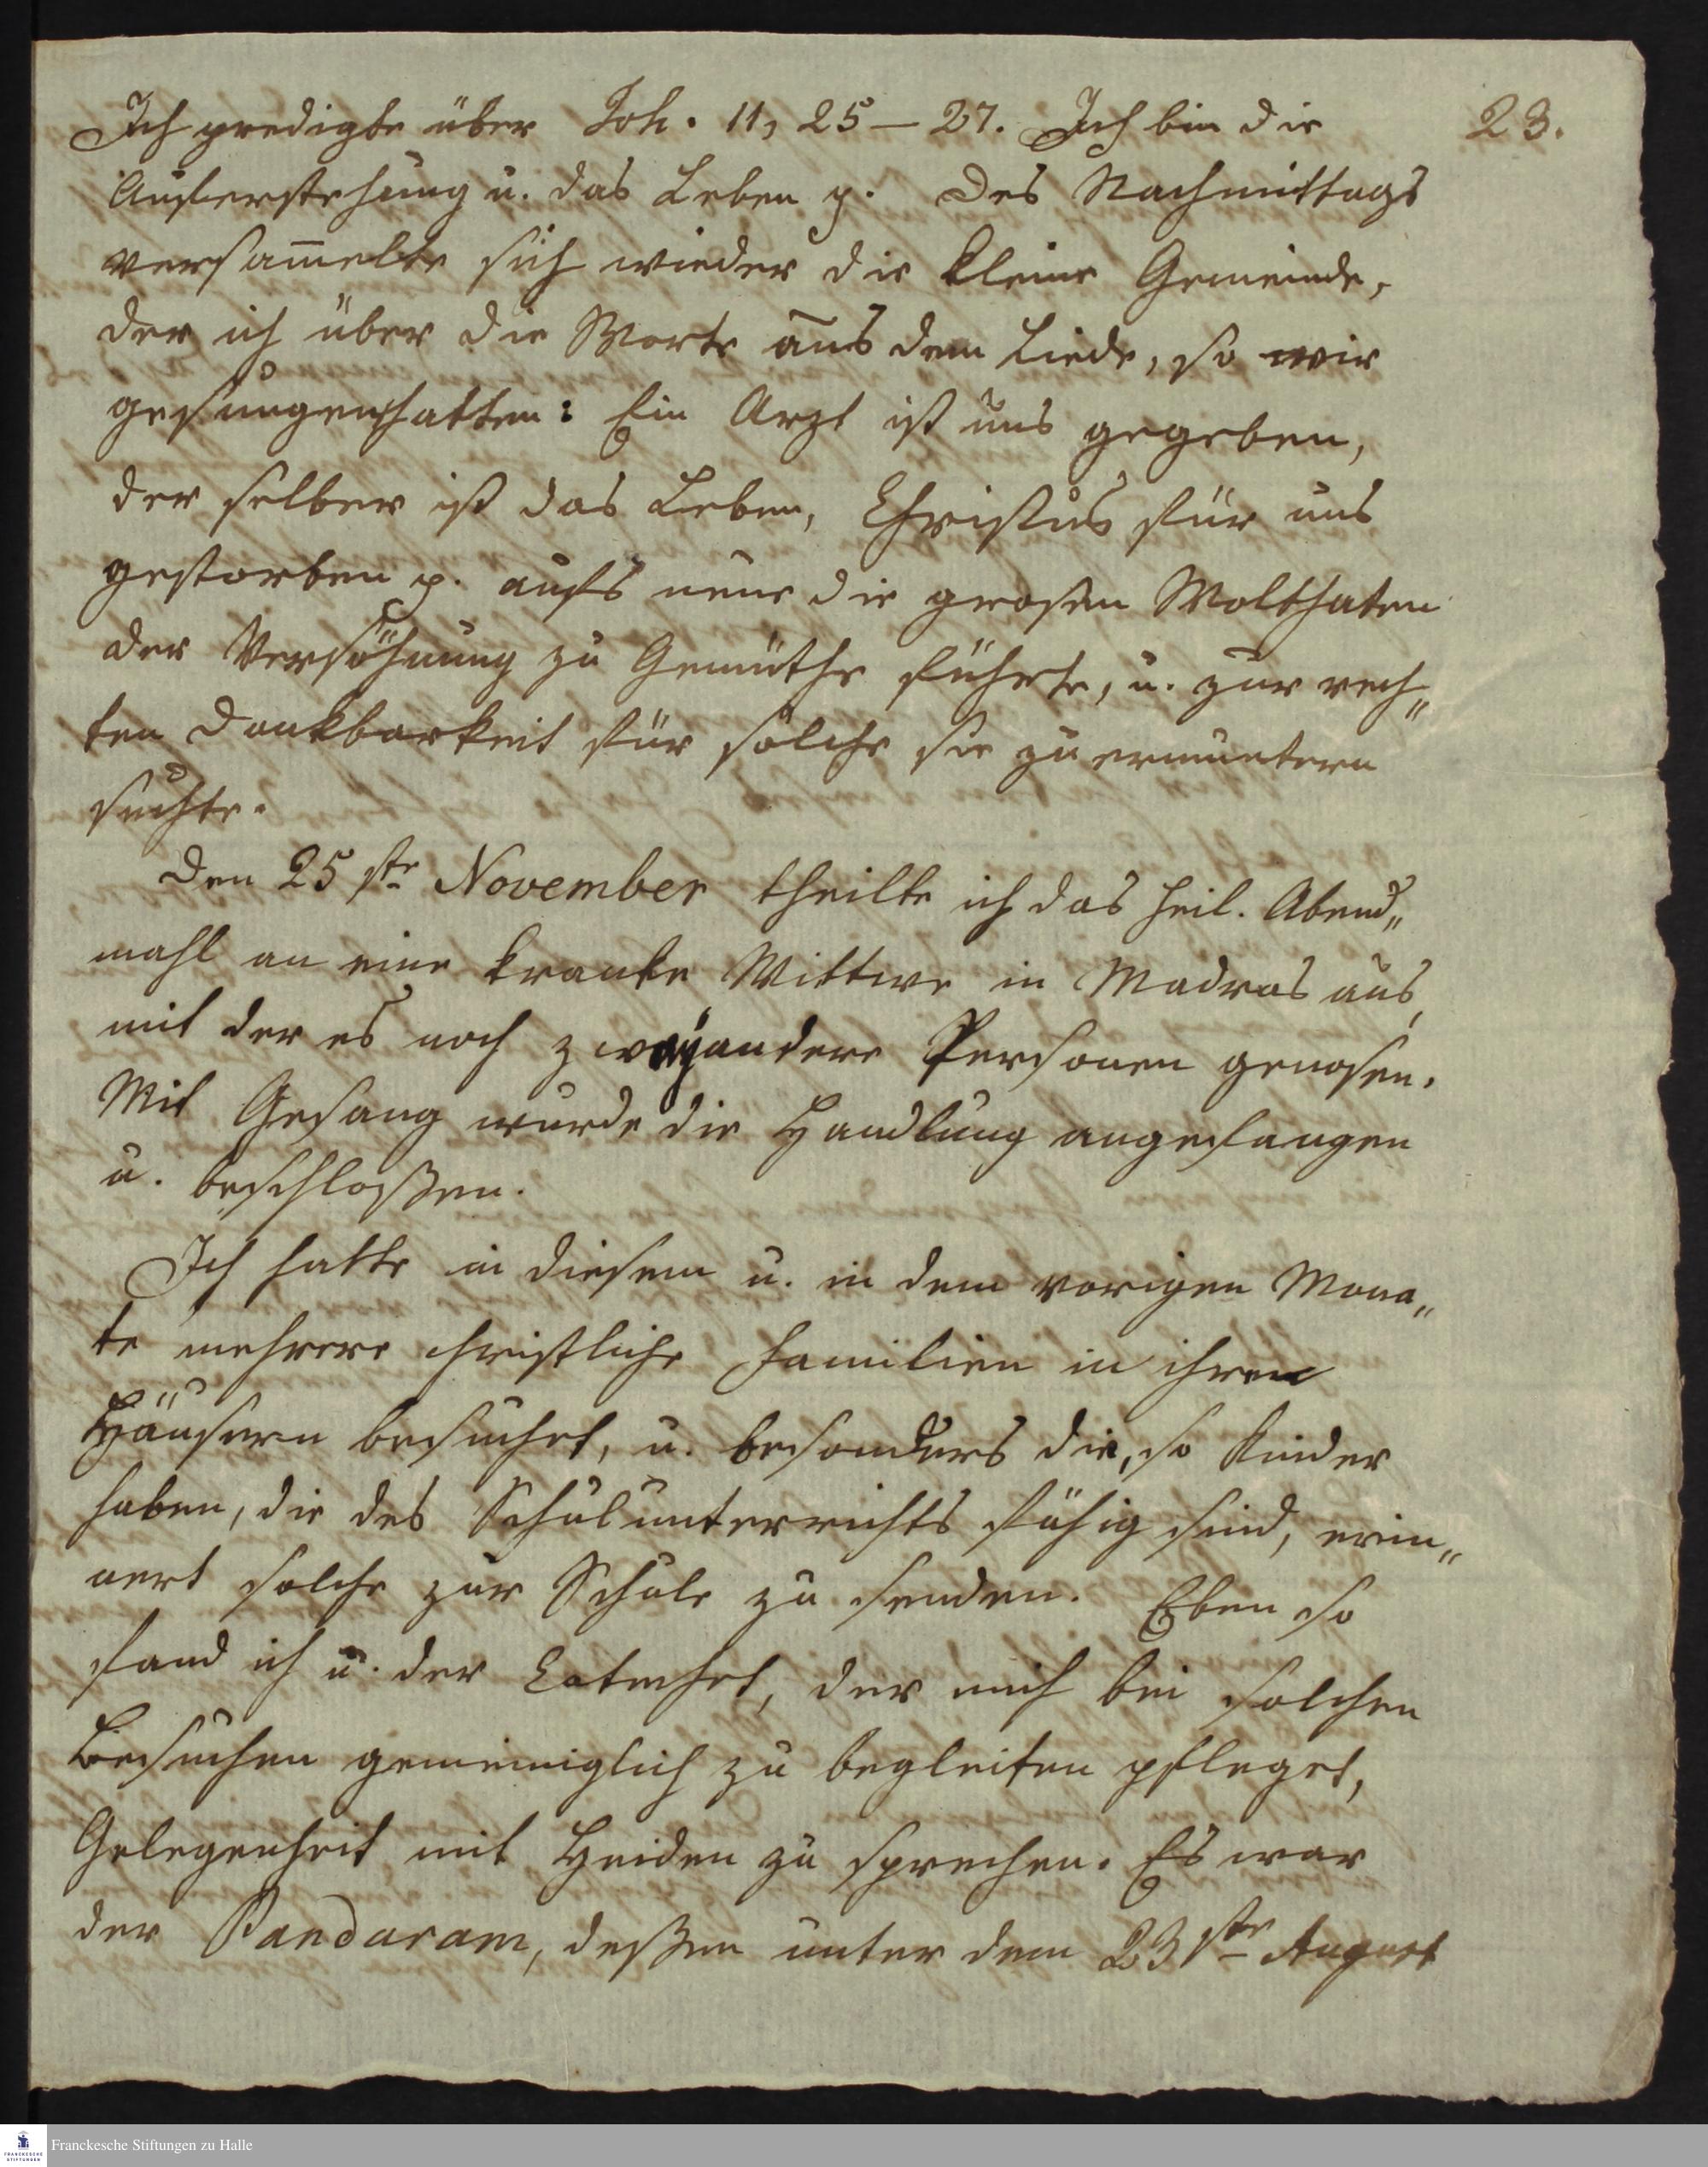 23.
Ich predigte über Joh. 11, 25 – 27. Ich bin die
Auferstehung u. das Leben p. Des Nachmittags
versam̅elte sich wieder die kleine Gemeinde,
der ich über die Worte aus dem Liede, so wir
gesungen hatten: Ein Arzt ist uns gegeben,
der selber ist das Leben, Christus für uns
gestorben p. aufs neue die grosen Wolthaten
der Versöhnung zu Gemüthe führte, u. zur rech„
ten Dankbarkeit für solche sie zu ermuntern
suchte.
Den 25ste November theilte ich das heil. Abend„
mahl an eine kranke Wittwe in Madras aus,
mit der es noch zwey andere Personen genosen.
Mit Gesang wurde die Handlung angefangen
u. beschloßen.
Ich hatte in diesem u. in dem vorigen Mona„
te mehrere christliche Familien in ihren
Häusern besuchet, u. besonders die, so Kinder
haben, die des Schulunterrichts fähig sind, erin„
nert solche zur Schule zu senden. Eben so
fand ich u. der Catechet, der mich bei solchen
Besuchen gemeiniglich zu begleiten pfleget,
Gelegenheit mit Heiden zu sprechen. Es war
der Pandaram, deßen unter dem 23ste August
Franckesche Stiftungen zu Halle
FRANCKESCHE
STIFTUNGEN